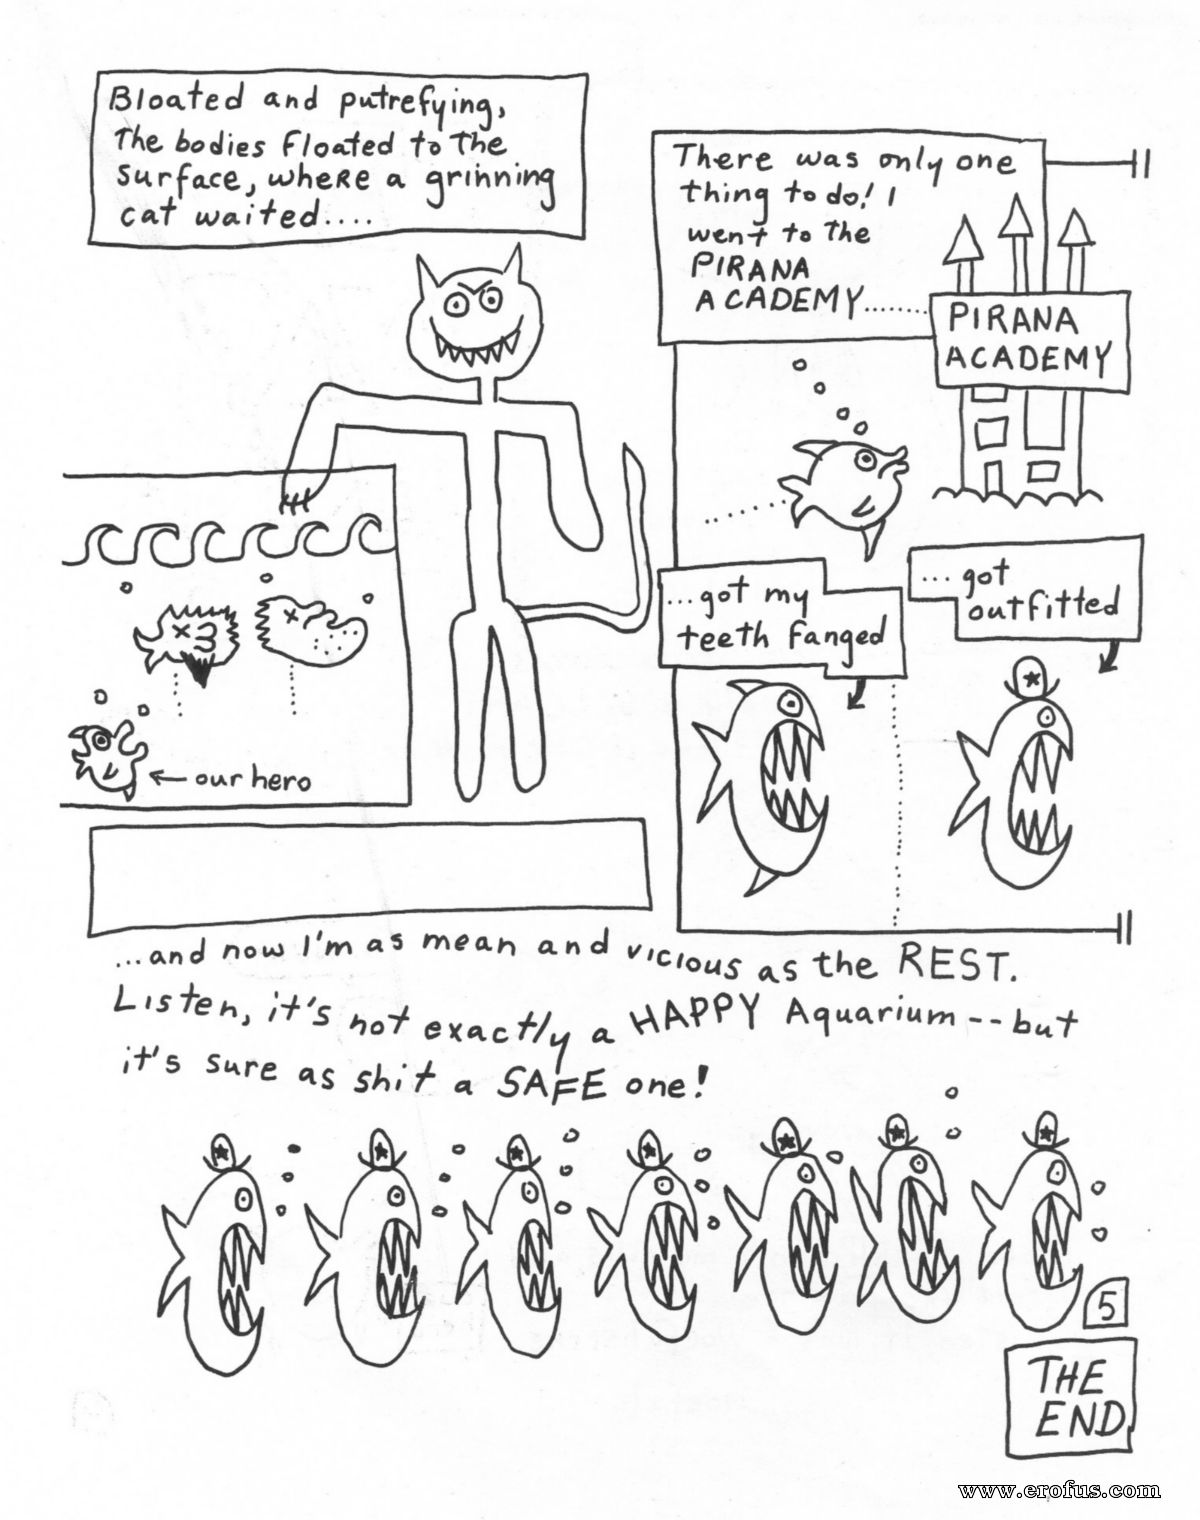 Bloated and putrefying,
the bodies floated to the
surface, where a grinning
cat waited....
our hero
There was only one
thing to do! I
went to the
PIRANA
ACADEMY........
PIRANA
ACADEMY
...got my
teeth fanged
... got
outfitted
...and now I'm as mean and vicious as the REST.
Listen, it's not exactly a HAPPY Aquarium -- but
it's sure as shit a SAFE one!
5
THE
END
www.erofus.com